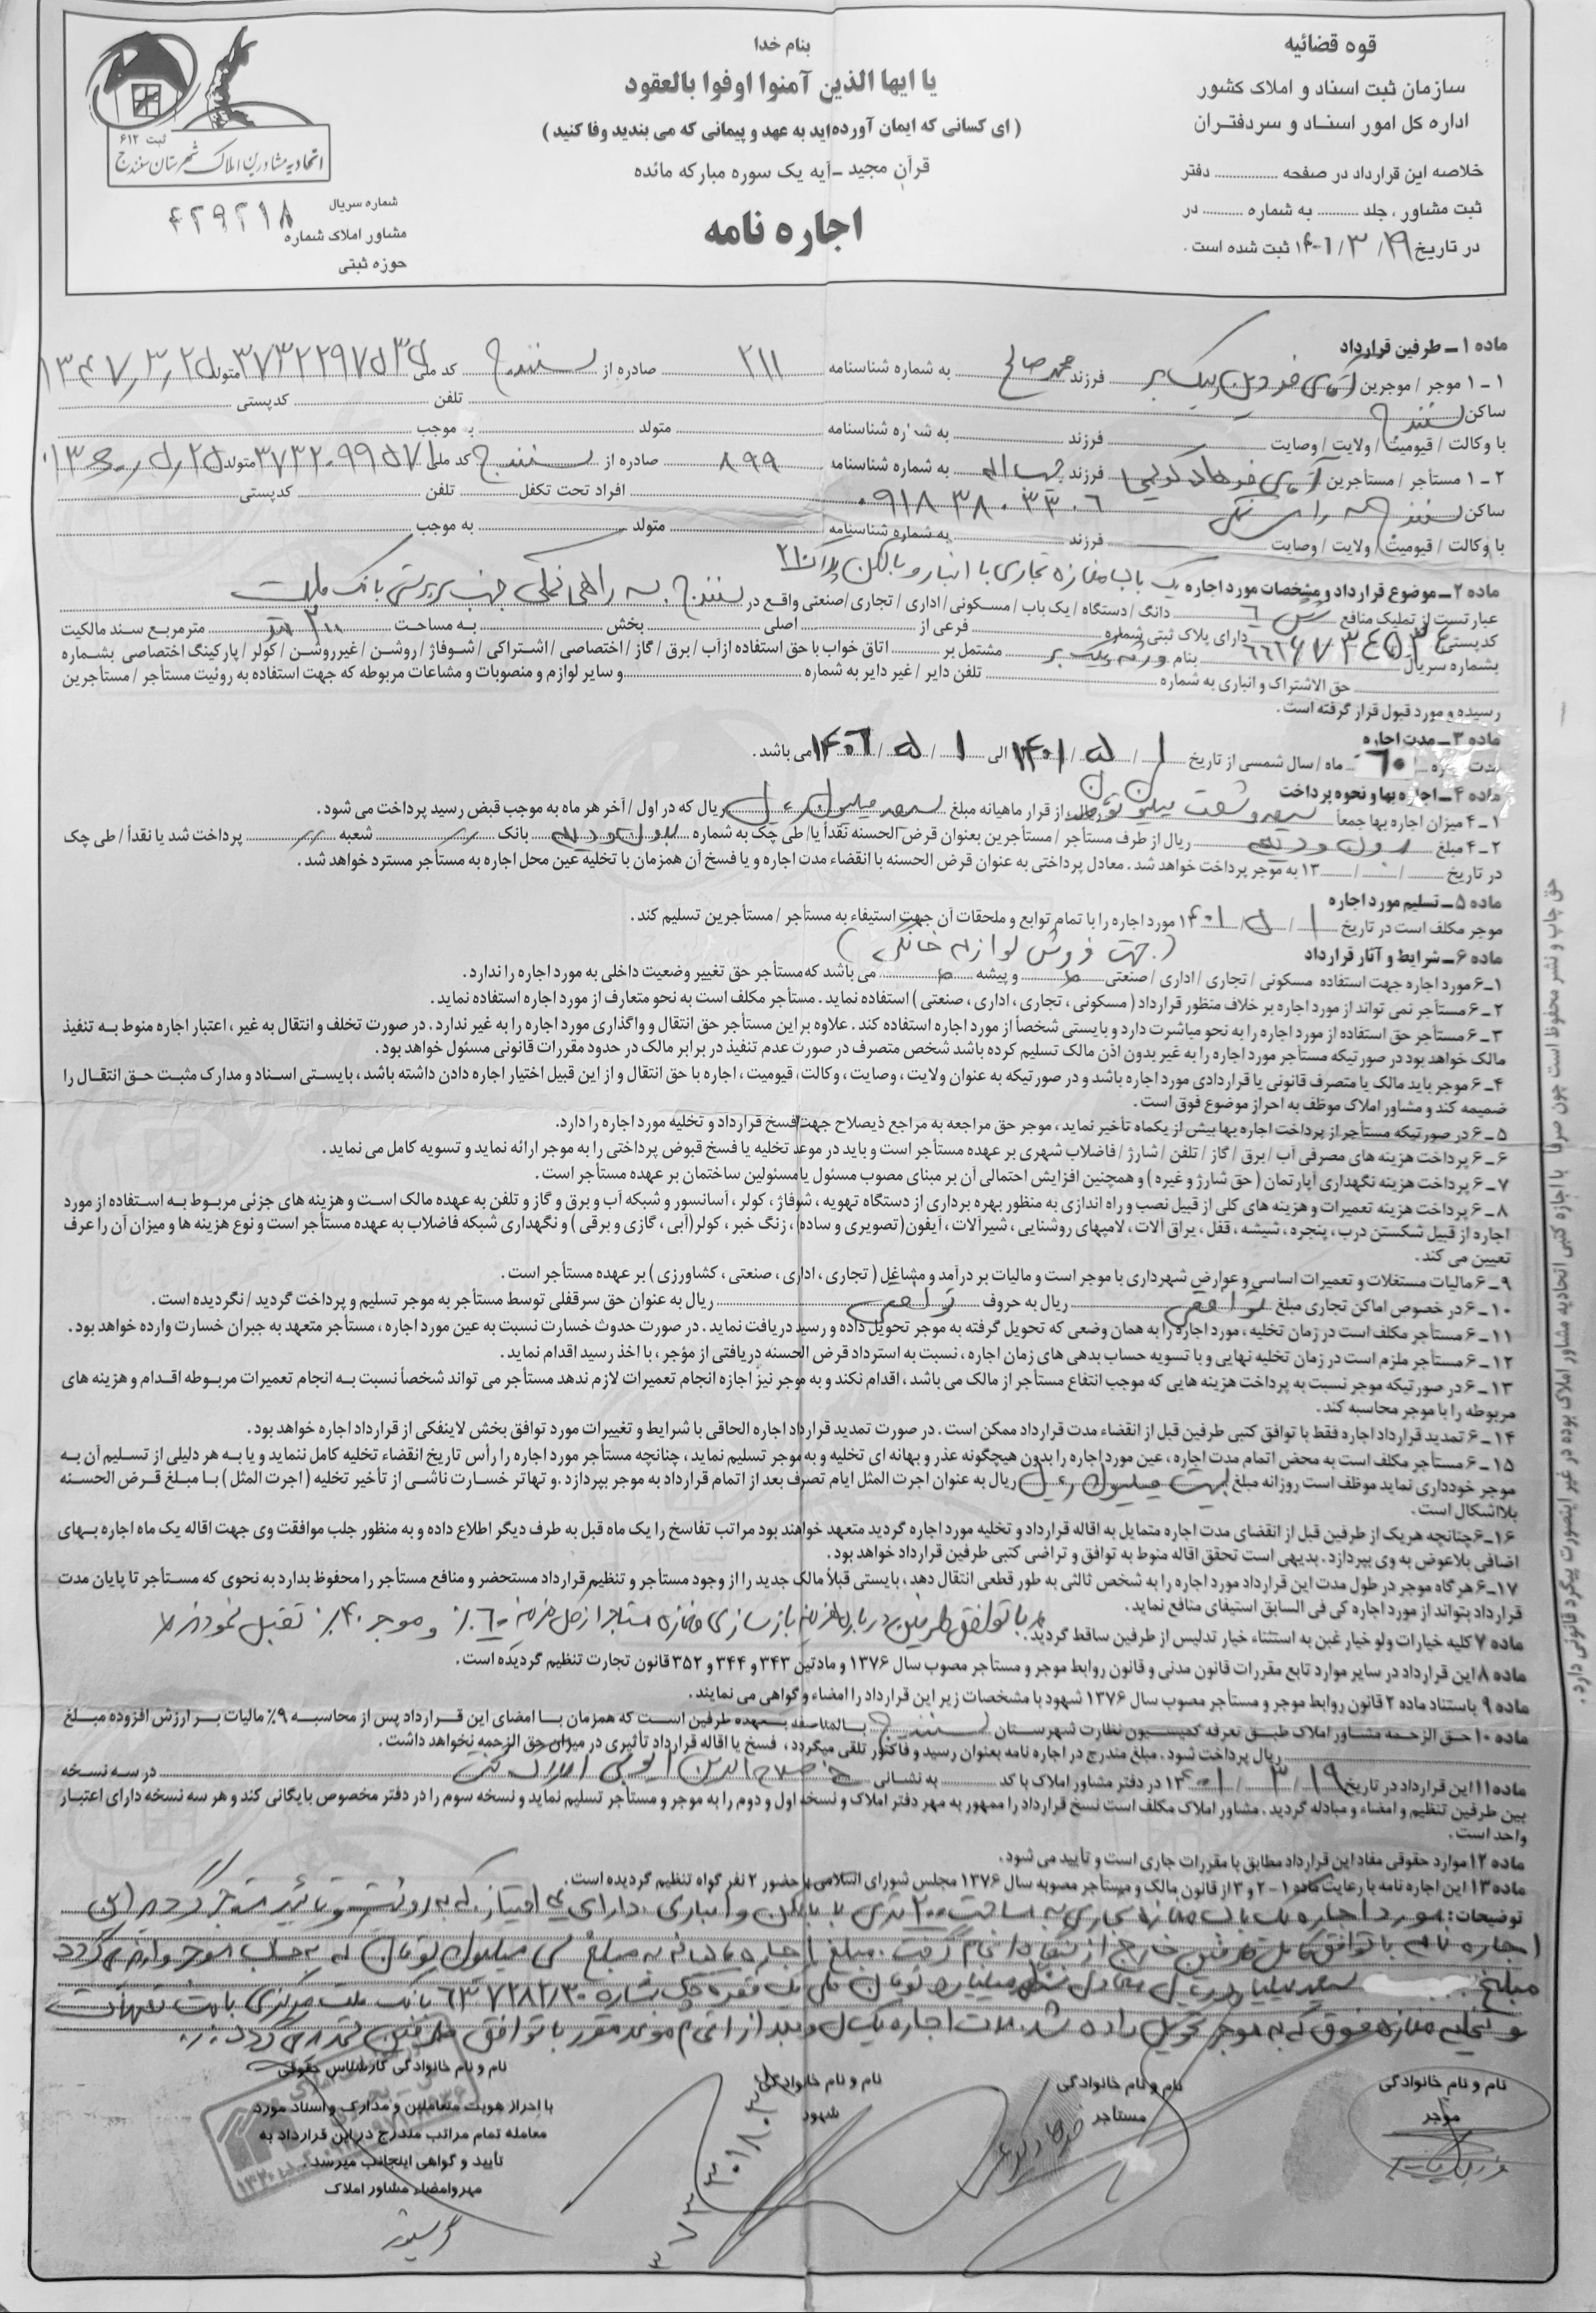 قوه قضائیه
سازمان ثبت اسناد و املاک کشور
اداره کل امور اسناد و سردفتران
خلاصه این قرارداد در صفحه ............ دفتر
ثبت مشاور ، جلد ......... به شماره ......... در
در تاریخ ۱۴۰۱/۳/۱۹ ثبت شده است .
بنام خدا
یا ایها الذین آمنوا اوفوا بالعقود
( ای کسانی که ایمان آورده‌اید به عهد و پیمانی که می بندید وفا کنید )
قرآن مجید ـ آیه یک سوره مبارکه مائده
اجاره نامه
ثبت ۶۱۲
اتحادیه مشاورین املاک شهرستان سنندج
شماره سریال ۴۲۹۲۱۸
مشاور املاک شماره
حوزه ثبتی
ماده ۱ ـ طرفین قرارداد
۱ ـ ۱ موجر / موجرین آقای فرزند محمد صالح به شماره شناسنامه ۲۱۱ صادره از سنندج کد ملی ۳۷۳۲۲۹۷۵۳۵ متولد ۱۳۴۷/۳/۲۵
ساکن سنندج تلفن کدپستی
با وکالت / قیومیت / ولایت / وصایت فرزند به شماره شناسنامه متولد به موجب
۲ ـ ۱ مستأجر / مستأجرین آقای فرهاد فرزند به شماره شناسنامه ۸۹۹ صادره از سنندج کد ملی ۳۷۳۲۰۹۹۵۷۱ متولد
ساکن سنندج ۰۹۱۸۳۸۰۳۳۰۶ افراد تحت تکفل تلفن کدپستی
با وکالت / قیومیت / ولایت / وصایت فرزند به شماره شناسنامه متولد به موجب
ماده ۲ ـ موضوع قرارداد و مشخصات مورد اجاره یک باب مغازه تجاری با انبار و بالکن پلاک ۲۱
عبارتست از تملیک منافع شش ۶ دانگ / دستگاه / یک باب / مسکونی / اداری / تجاری / صنعتی واقع در سنندج سه راهی نمکی جنب سرپرستی بانک ملت
کدپستی دارای پلاک ثبتی شماره فرعی از اصلی بخش به مساحت ۲۰۰ متر مترمربع سند مالکیت
بشماره سریال بنام مشتمل بر اتاق خواب با حق استفاده از آب / برق / گاز / اختصاصی / اشتراکی / شوفاژ / روشن / غیر روشن / کولر / پارکینگ اختصاصی بشماره
حق الاشتراک و انباری به شماره تلفن دایر / غیر دایر به شماره و سایر لوازم و منصوبات و مشاعات مربوطه که جهت استفاده به رویت مستأجر / مستأجرین
رسیده و مورد قبول قرار گرفته است .
ماده ۳ ـ مدت اجاره
مدت ۶۰ ماه / سال شمسی از تاریخ ۱ / ۵ / ۱۴۰۱ الی ۱ / ۵ / ۱۴۰۶ می باشد .
ماده ۴ ـ اجاره بها و نحوه پرداخت
۱ ـ ۴ میزان اجاره بها جمعاً سیصد و شصت میلیون تومان ریال، از قرار ماهیانه مبلغ سیصد میلیون ریال ریال که در اول / آخر هر ماه به موجب قبض رسید پرداخت می شود .
۲ ـ ۴ مبلغ بدون ودیعه ریال از طرف مستأجر / مستأجرین بعنوان قرض الحسنه نقداً یا / طی چک به شماره بدون ودیعه بانک شعبه پرداخت شد یا نقداً / طی چک
در تاریخ / / ۱۳ به موجر پرداخت خواهد شد . معادل پرداختی به عنوان قرض الحسنه با انقضاء مدت اجاره و یا فسخ آن همزمان با تخلیه عین محل اجاره به مستأجر مسترد خواهد شد .
ماده ۵ ـ تسلیم مورد اجاره
موجر مکلف است در تاریخ ۱ / ۵ / ۱۴۰۱ مورد اجاره را با تمام توابع و ملحقات آن جهت استیفاء به مستأجر / مستأجرین تسلیم کند .
ماده ۶ ـ شرایط و آثار قرارداد ( جهت فروش لوازم خانگی )
۱ـ ۶ مورد اجاره جهت استفاده مسکونی / تجاری / اداری / صنعتی و پیشه می باشد که مستأجر حق تغییر وضعیت داخلی به مورد اجاره را ندارد .
۲ ـ ۶ مستأجر نمی تواند از مورد اجاره بر خلاف منظور قرارداد ( مسکونی ، تجاری ، اداری ، صنعتی ) استفاده نماید . مستأجر مکلف است به نحو متعارف از مورد اجاره استفاده نماید .
۳ ـ ۶ مستأجر حق استفاده از مورد اجاره را به نحو مباشرت دارد و بایستی شخصاً از مورد اجاره استفاده کند . علاوه بر این مستأجر حق انتقال و واگذاری مورد اجاره را به غیر ندارد . در صورت تخلف و انتقال به غیر ، اعتبار اجاره منوط به تنفیذ
مالک خواهد بود در صورتیکه مستأجر مورد اجاره را به غیر بدون اذن مالک تسلیم کرده باشد شخص متصرف در صورت عدم تنفیذ در برابر مالک در حدود مقررات قانونی مسئول خواهد بود .
۴ ـ ۶ موجر باید مالک یا متصرف قانونی یا قراردادی مورد اجاره باشد و در صورتیکه به عنوان ولایت ، وصایت ، وکالت ، قیومیت ، اجاره با حق انتقال و از این قبیل اختیار اجاره دادن داشته باشد ، بایستی اسناد و مدارک مثبت حق انتقال را
ضمیمه کند و مشاور املاک موظف به احراز موضوع فوق است .
۵ ـ ۶ در صورتیکه مستأجر از پرداخت اجاره بها بیش از یکماه تأخیر نماید ، موجر حق مراجعه به مراجع ذیصلاح جهت فسخ قرارداد و تخلیه مورد اجاره را دارد.
۶ ـ ۶ پرداخت هزینه های مصرفی آب / برق / گاز / تلفن / شارژ / فاضلاب شهری بر عهده مستأجر است و باید در موعد تخلیه یا فسخ قبوض پرداختی را به موجر ارائه نماید و تسویه کامل می نماید .
۷ ـ ۶ پرداخت هزینه نگهداری آپارتمان ( حق شارژ و غیره ) و همچنین افزایش احتمالی آن بر مبنای مصوب مسئول یا مسئولین ساختمان بر عهده مستأجر است .
۸ ـ ۶ پرداخت هزینه تعمیرات و هزینه های کلی از قبیل نصب و راه اندازی به منظور بهره برداری از دستگاه تهویه ، شوفاژ ، کولر ، آسانسور و شبکه آب و برق و گاز و تلفن به عهده مالک است و هزینه های جزئی مربوط به استفاده از مورد
اجاره از قبیل شکستن درب ، پنجره ، شیشه ، قفل ، یراق آلات ، لامپهای روشنایی ، شیرآلات ، آیفون(تصویری و ساده) ، زنگ خبر ، کولر(آبی ، گازی و برقی ) و نگهداری شبکه فاضلاب به عهده مستأجر است و نوع هزینه ها و میزان آن را عرف
تعیین می کند .
۹ ـ ۶ مالیات مستغلات و تعمیرات اساسی و عوارض شهرداری با موجر است و مالیات بر درآمد و مشاغل ( تجاری ، اداری ، صنعتی ، کشاورزی ) بر عهده مستأجر است .
۱۰ ـ ۶ در خصوص اماکن تجاری مبلغ توافقی ریال به حروف توافقی ریال به عنوان حق سرقفلی توسط مستأجر به موجر تسلیم و پرداخت گردید / نگردیده است .
۱۱ ـ ۶ مستأجر مکلف است در زمان تخلیه ، مورد اجاره را به همان وضعی که تحویل گرفته به موجر تحویل داده و رسید دریافت نماید . در صورت حدوث خسارت نسبت به عین مورد اجاره ، مستأجر متعهد به جبران خسارت وارده خواهد بود .
۱۲ ـ ۶ مستأجر ملزم است در زمان تخلیه نهایی و با تسویه حساب بدهی های زمان اجاره ، نسبت به استرداد قرض الحسنه دریافتی از مؤجر ، با اخذ رسید اقدام نماید .
۱۳ ـ ۶ در صورتیکه موجر نسبت به پرداخت هزینه هایی که موجب انتفاع مستأجر از مالک می باشد ، اقدام نکند و به موجر نیز اجازه انجام تعمیرات لازم ندهد مستأجر می تواند شخصاً نسبت به انجام تعمیرات مربوطه اقدام و هزینه های
مربوطه را با موجر محاسبه کند .
۱۴ ـ ۶ تمدید قرارداد اجاره فقط با توافق کتبی طرفین قبل از انقضاء مدت قرارداد ممکن است . در صورت تمدید قرارداد اجاره الحاقی با شرایط و تغییرات مورد توافق بخش لاینفکی از قرارداد اجاره خواهد بود .
۱۵ ـ ۶ مستأجر مکلف است به محض اتمام مدت اجاره ، عین مورد اجاره را بدون هیچگونه عذر و بهانه ای تخلیه و به موجر تسلیم نماید ، چنانچه مستأجر مورد اجاره را رأس تاریخ انقضاء تخلیه کامل ننماید و یا به هر دلیلی از تسلیم آن به
موجر خودداری نماید موظف است روزانه مبلغ بیست میلیون ریال ریال به عنوان اجرت المثل ایام تصرف بعد از اتمام قرارداد به موجر بپردازد . و تهاتر خسارت ناشی از تأخیر تخلیه ( اجرت المثل ) با مبلغ قرض الحسنه
بلااشکال است .
۱۶ـ۶ چنانچه هر یک از طرفین قبل از انقضای مدت اجاره متمایل به اقاله قرارداد و تخلیه مورد اجاره گردید متعهد خواهند بود مراتب تفاسخ را یک ماه قبل به طرف دیگر اطلاع داده و به منظور جلب موافقت وی جهت اقاله یک ماه اجاره بهای
اضافی بلاعوض به وی بپردازد . بدیهی است تحقق اقاله منوط به توافق و تراضی کتبی طرفین قرارداد خواهد بود .
۱۷ـ۶ هر گاه موجر در طول مدت این قرارداد مورد اجاره را به شخص ثالثی به طور قطعی انتقال دهد ، بایستی قبلاً مالک جدید را از وجود مستأجر و تنظیم قرارداد مستحضر و منافع مستأجر را محفوظ بدارد به نحوی که مستأجر تا پایان مدت
قرارداد بتواند از مورد اجاره کی فی السابق استیفای منافع نماید .
با توافق طرفین در باره هزینه بازسازی مغازه مستاجر از کل هزینه ۶۰٪ و موجر ۴۰٪ تقبل نمودند
ماده ۷ کلیه خیارات ولو خیار غبن به استثناء خیار تدلیس از طرفین ساقط گردید .
ماده ۸ این قرارداد در سایر موارد تابع مقررات قانون مدنی و قانون روابط موجر و مستأجر مصوب سال ۱۳۷۶ و مادتین ۳۴۳ و ۳۴۴ و ۳۵۲ قانون تجارت تنظیم گردیده است .
ماده ۹ باستناد ماده ۲ قانون روابط موجر و مستأجر مصوب سال ۱۳۷۶ شهود با مشخصات زیر این قرارداد را امضاء و گواهی می نمایند .
ماده ۱۰ حق الزحمه مشاور املاک طبق تعرفه کمیسیون نظارت شهرستان سنندج بالمناصفه بعهده طرفین است که همزمان با امضای این قرارداد پس از محاسبه ۹٪ مالیات بر ارزش افزوده مبلغ
ریال پرداخت شود . مبلغ مندرج در اجاره نامه بعنوان رسید و فاکتور تلقی میگردد ، فسخ یا اقاله قرارداد تأثیری در میزان حق الزحمه نخواهد داشت .
ماده ۱۱ این قرارداد در تاریخ ۱۹ / ۳ / ۱۴۰۱ در دفتر مشاور املاک با کد به نشانی خ صلاح الدین ایوبی املاک در سه نسخه
بین طرفین تنظیم و امضاء و مبادله گردید . مشاور املاک مکلف است نسخ قرارداد را ممهور به مهر دفتر املاک و نسخه اول و دوم را به موجر و مستأجر تسلیم نماید و نسخه سوم را در دفتر مخصوص بایگانی کند و هر سه نسخه دارای اعتبار
واحد است .
ماده ۱۲ موارد حقوقی مفاد این قرارداد مطابق با مقررات جاری است و تأیید می شود .
ماده ۱۳ این اجاره نامه با رعایت ماده ۱ ـ ۲ و ۳ از قانون مالک و مستأجر مصوبه سال ۱۳۷۶ مجلس شورای اسلامی با حضور ۲ نفر گواه تنظیم گردیده است .
توضیحات : مورد اجاره یک باب مغازه تجاری به مساحت ۲۰۰ متری با بالکن و انباری دارای امتیاز که به رویت و تائید مستاجر گردید این
اجاره نامه با توافق کامل طرفین خارج از بنگاه انجام گرفت . مبلغ اجاره ماهیانه به مبلغ سی میلیون تومان که به حساب موجر واریز می گردد
مبلغ میلیارد ریال معادل میلیارد تومان طی یک فقره چک شماره ۶۳۷۲۸۲/۳۰ بانک ملت مرکزی بابت تعهدات
و تخلیه مغازه فوق که به موجر تحویل داده شد . مدت اجاره یک سال و بعد از اتمام موعد مقرر با توافق طرفین تمدید می گردد
نام و نام خانوادگی
موجر
نام و نام خانوادگی
مستأجر
نام و نام خانوادگی
شهود
نام و نام خانوادگی کارشناس حقوقی
با احراز هویت متعاملین و مدارک و اسناد مورد
معامله تمام مراتب مندرج در این قرارداد به
تأیید و گواهی اینجانب میرسد .
مهر و امضاء مشاور املاک
حق چاپ و نشر محفوظ است چون صرفاً با اجازه کتبی اتحادیه مشاور املاک بوده در غیر اینصورت پیگرد قانونی دارد .